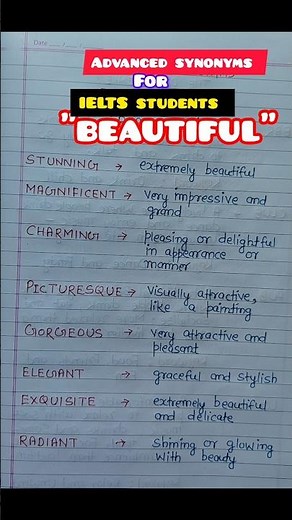 Date
ADVANCED SYNONYMS
FOR
IELTS STUDENTS
"BEAUTIFUL"
STUNNING → extremely beautiful
MAGNIFICENT → Very impressive and
grand
CHARMING → pleasing or delightful
in appearance or
manner
PICTURESQUE → Visually attractive,
like a painting
GORGEOUS → Very attractive and
pleasant
ELEGANT → graceful and stylish
EXQUISITE → extremely beautiful
and delicate
RADIANT → Shining or glowing
with beauty